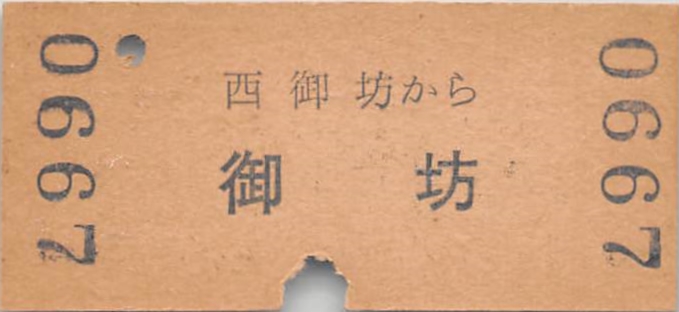 0667
西御坊から
御坊
0667